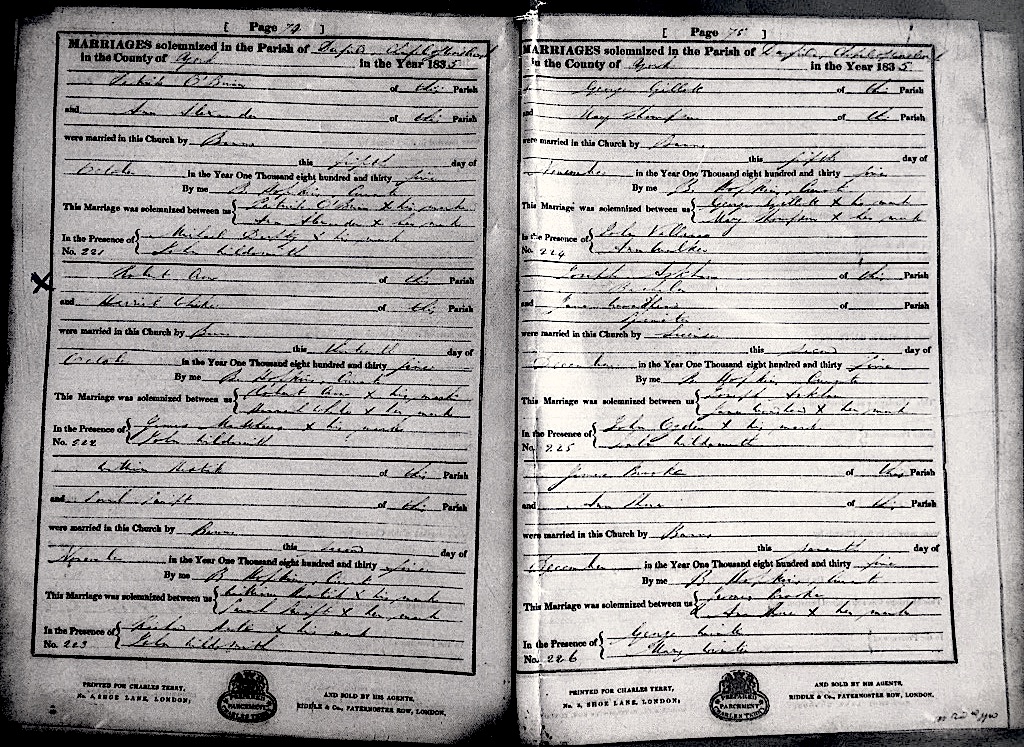 [ Page 74 ]
MARRIAGES solemnized in the Parish of
in the County of York in the Year 1835
Patrick O'Brien of this Parish
and Ann Alexander of this Parish
were married in this Church by Banns
this fifth day of
October in the Year One Thousand eight hundred and thirty five
By me B Hopkins, Curate
This Marriage was solemnized between us { Patrick O'Brien x his mark
Ann Alexander x her mark
In the Presence of { Michael x his mark
No. 221 John Hildsmith
Robert of this Parish
and Harriet of this Parish
were married in this Church by Banns
this day of
October in the Year One Thousand eight hundred and thirty five
By me B Hopkins, Curate
This Marriage was solemnized between us { Robert x his mark
x her mark
In the Presence of { James Matthews x his mark
No. 222 John Hildsmith
William of this Parish
and Sarah Swift of this Parish
were married in this Church by Banns
this second day of
November in the Year One Thousand eight hundred and thirty five
By me B Hopkins, Curate
This Marriage was solemnized between us { William x his mark
Sarah Swift x her mark
In the Presence of { Richard x his mark
No. 223 John Hildsmith
PRINTED FOR CHARLES TERRY,
No. 5, SHOE LANE, LONDON;
PREPARED
PARCHMENT
CHARLES TERRY
AND SOLD BY HIS AGENTS,
RIDDLE & Co., PATERNOSTER ROW, LONDON.
[ Page 75 ]
MARRIAGES solemnized in the Parish of
in the County of York in the Year 1835
George Gillott of this Parish
and Mary Thompson of this Parish
were married in this Church by Banns
this fifth day of
November in the Year One Thousand eight hundred and thirty five
By me B Hopkins, Curate
This Marriage was solemnized between us { George Gillott x his mark
Mary Thompson x her mark
In the Presence of {
No. 224 Ann Walker
Joseph of this Parish
Bachelor
and Jane of Parish
Spinster
were married in this Church by License
this second day of
December in the Year One Thousand eight hundred and thirty five
By me B Hopkins Curate
This Marriage was solemnized between us { Joseph
Jane x her mark
In the Presence of { John Ogden x his mark
No. 225 John Hildsmith
James of this Parish
and Ann of this Parish
were married in this Church by Banns
this seventh day of
December in the Year One Thousand eight hundred and thirty five
By me B Hopkins, Curate
This Marriage was solemnized between us { James
Ann x her mark
In the Presence of { George
No. 226 Mary
PRINTED FOR CHARLES TERRY,
No. 5, SHOE LANE, LONDON;
PREPARED
PARCHMENT
CHARLES TERRY
AND SOLD BY HIS AGENTS,
RIDDLE & Co., PATERNOSTER ROW, LONDON.